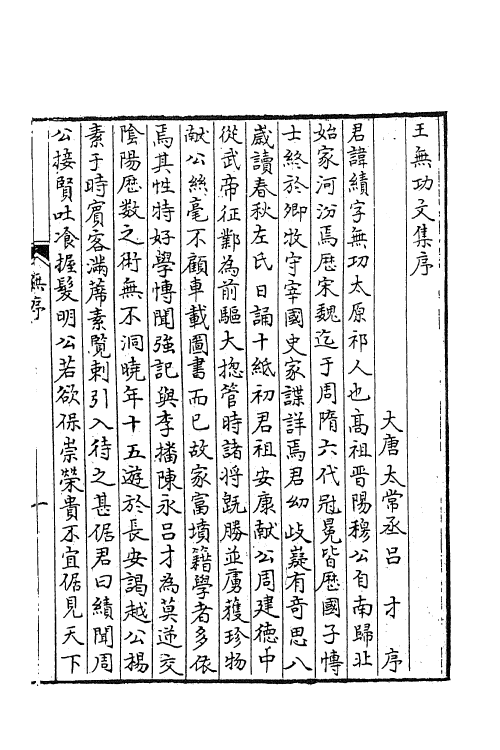 王無功文集序
大唐太常丞呂才序
君諱績字無功太原祁人也高祖晋陽穆公自南歸北
始家河汾焉歴宋魏迄于周隋六代冠冕皆歴國子博
士終於卿牧守宰國史家諜詳焉君幼岐嶷有奇思八
歲讀春秋左氏日誦十紙初君祖安康献公周建德中
從武帝征鄴為前驅大揔管時諸將既勝並虜獲珍物
献公絲毫不顧車載圖書而已故家富墳籍學者多依
焉其性特好學愽聞強記與李播陳永吕才為莫逆交
陰陽歴数之術無不洞曉年十五遊於長安謁越公楊
素于時賓客滿蓆素覽刺引入待之甚倨君曰績聞周
公接賢吐飡握髮明公若欲保崇榮貴不宜倨見天下
序
一